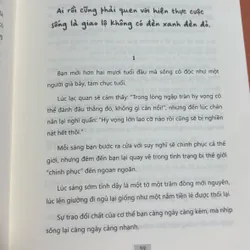 Ai rồi cũng phải quen với hiện thực cuộc
sống là giao lộ không có đèn xanh đèn đỏ.
1
Bạn mới hơn hai mươi tuổi đầu mà sống cô độc như một
người già bảy, tám chục tuổi.
Lúc lạc quan sẽ cảm thấy: “Trong lòng ngập tràn hy vọng có
thể đánh đâu thắng đó, không gì cản nổi”, nhưng đến lúc chán
nản lại nghĩ quẩn: “Hy vọng lớn lao cỡ nào rồi cũng sẽ bị nghiền
nát hết thôi.”
Mỗi sáng bạn bước ra cửa với suy nghĩ sẽ chinh phục cả thế
giới, nhưng đêm đến bạn lại quay về trong tình trạng bị thế giới
“chinh phục” đến ngoan ngoãn.
Lúc sáng sớm tỉnh dậy là một tờ một trăm đồng mới nguyên,
lúc lên giường đi ngủ lại giống như một nắm tiền lẻ được thối lại.
Sự trao đổi chất của cơ thể bạn càng ngày càng kém, mà nhịp
sống lại càng ngày càng nhanh.